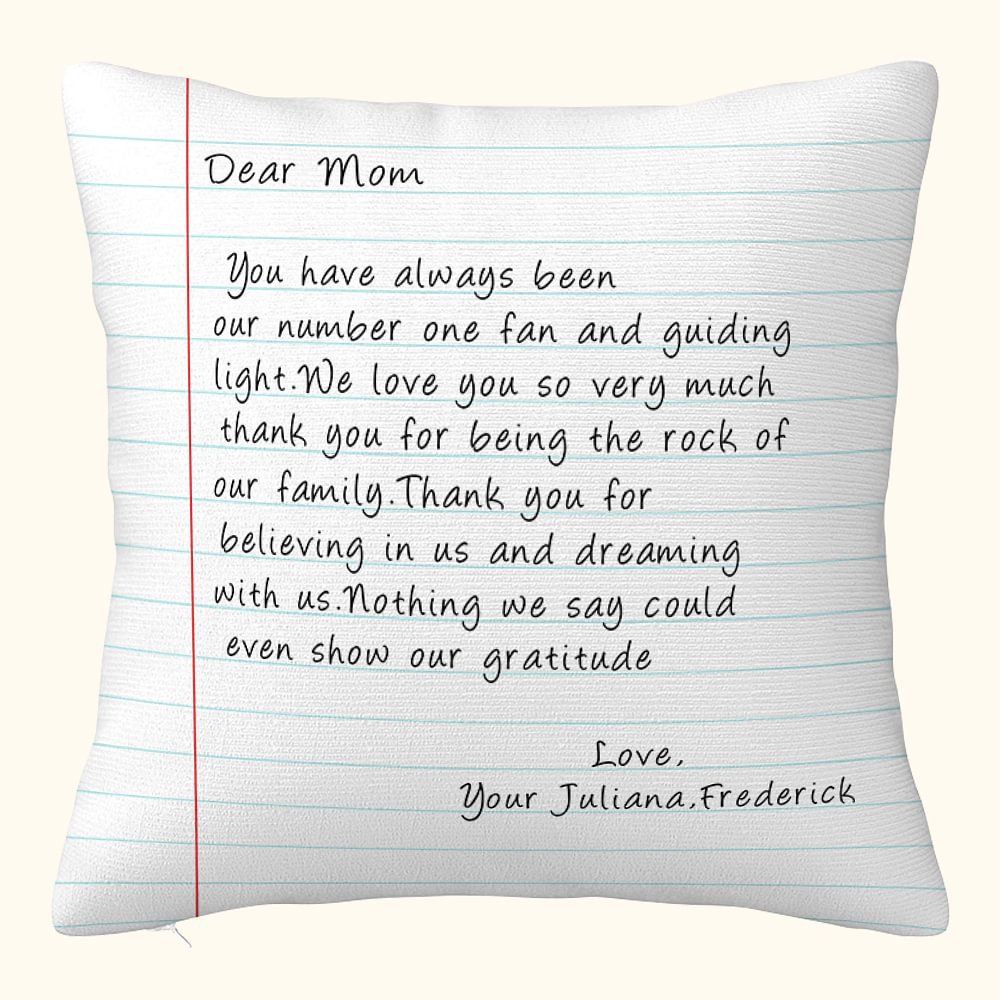 Dear Mom
You have always been
our number one fan and guiding
light.We love you so very much
thank you for being the rock of
our family.Thank you for
believing in us and dreaming
with us.Nothing we say could
even show our gratitude
Love,
Your Juliana,Frederick